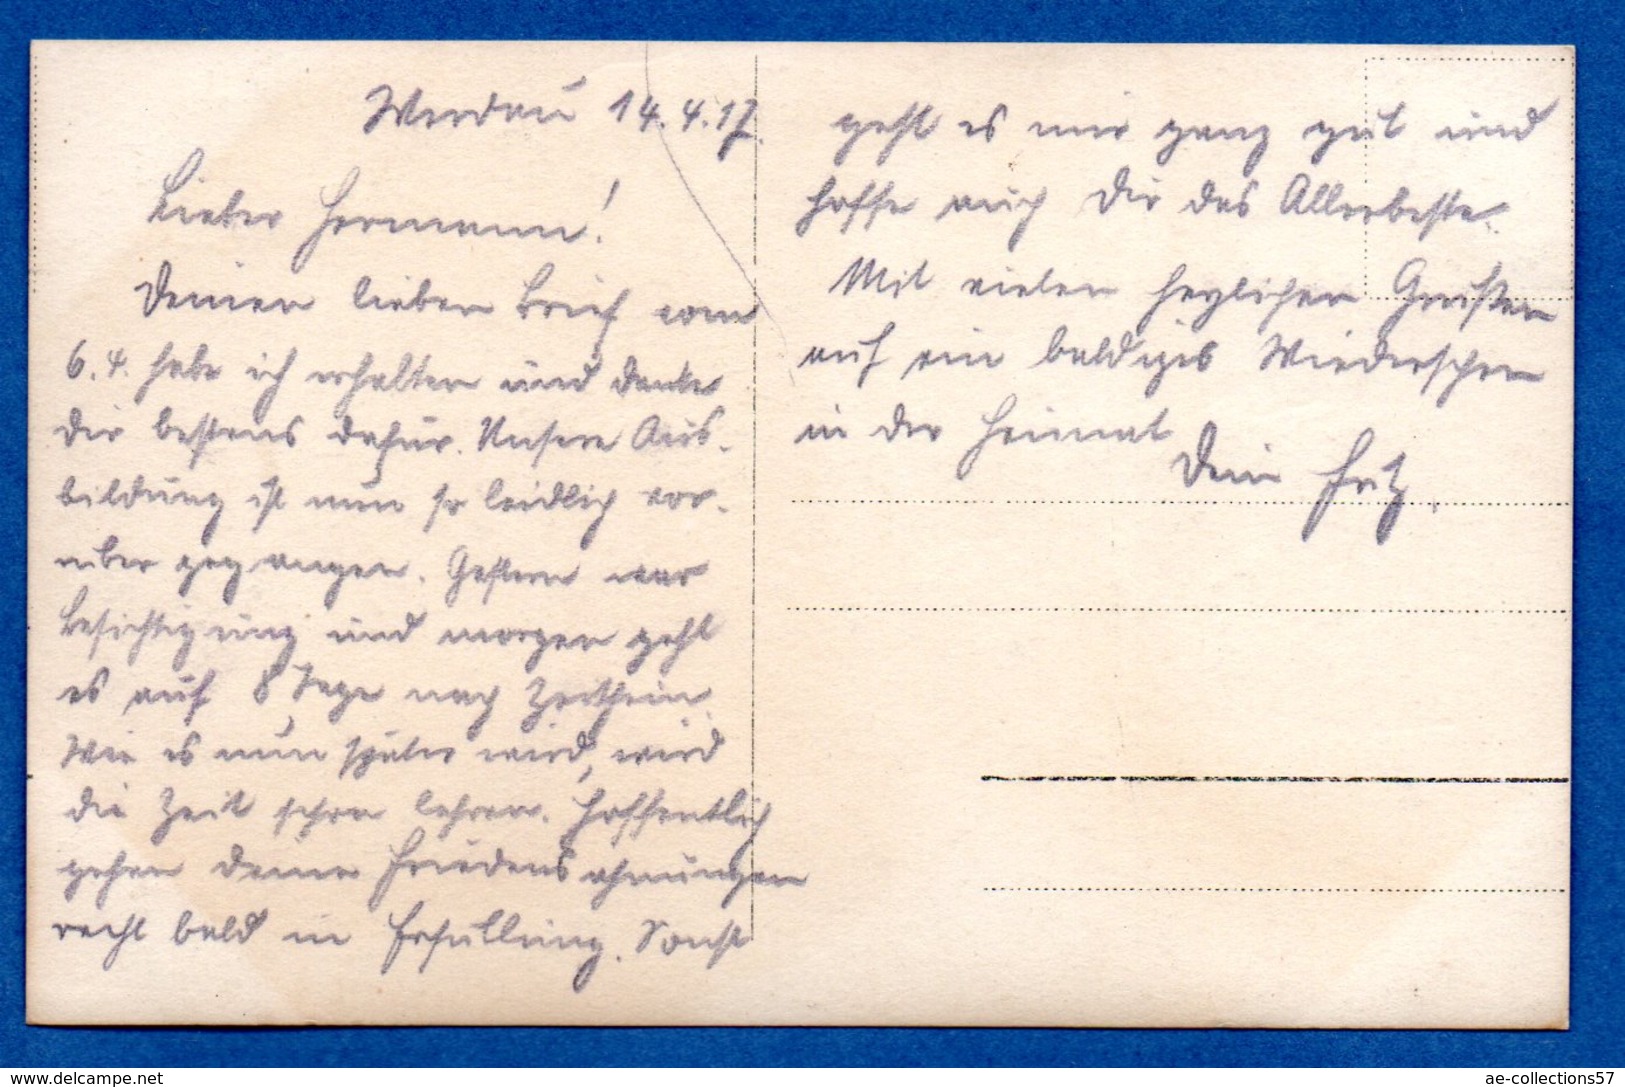 Werdau 14.4.17.
Lieber Hermann!
Deinen lieben Brief vom
6.4. habe ich erhalten und danke
Dir bestens dafür. Unsere Aus-
bildung ist nun so leidlich vor-
über gegangen. Gestern war
Besichtigung und morgen geht
es auf 8 Tage nach Zeithain.
Wie es nun später wird, wird
die Zeit schon lehren. Hoffentlich
gehen Deine Friedensahnungen
recht bald in Erfüllung. Sonst
geht es mir ganz gut und
hoffe auch Dir das Allerbeste.
Mit vielen herzlichen Grüßen
auf ein baldiges Wiedersehen
in der Heimat
Dein Fritz.
www.delcampe.net
ae-collections57